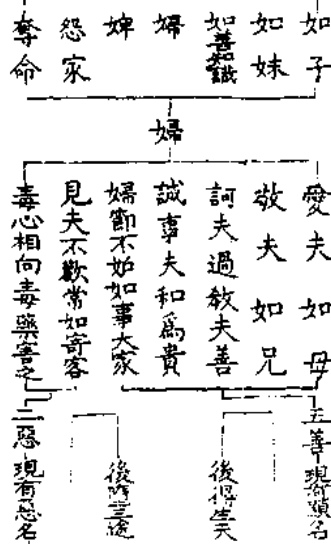 如子
如妹
如善知識
婦
婢
怨家
奪命
婦
愛夫如母
敬夫如兄
訶夫過教夫善
誠事夫和爲貴
婦節不妬如事大家
見夫不歡常如寄客
毒心相向毒藥害之
五善現有顯名
後得生天
後墮三途
二惡現有惡名